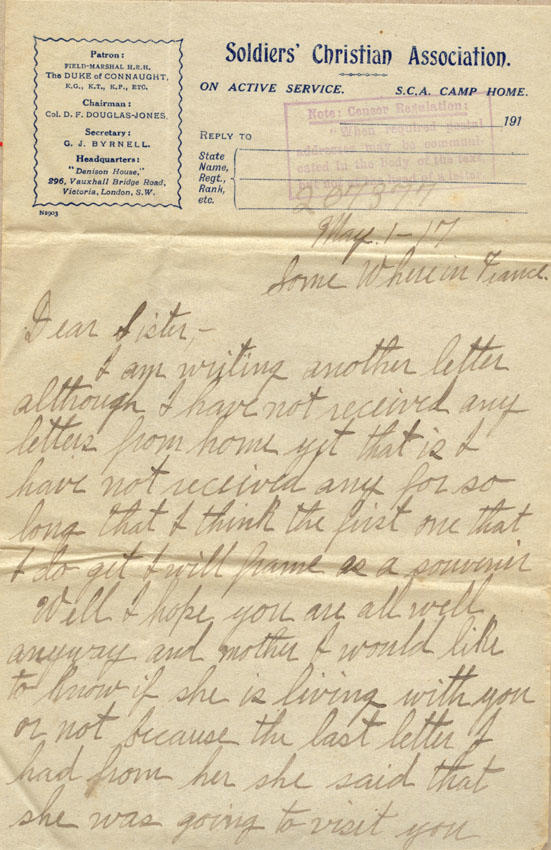 Patron:
FIELD-MARSHAL H.R.H.
The DUKE of CONNAUGHT,
K.G., K.T., K.P., ETC.
Chairman:
Col. D. F. DOUGLAS-JONES.
Secretary:
G. J. BYRNELL.
Headquarters:
"Denison House,"
296, Vauxhall Bridge Road,
Victoria, London, S.W.
N2903
Soldiers' Christian Association.
ON ACTIVE SERVICE. S.C.A. CAMP HOME.
Note: Censor Regulation:
"When required postal
addresses may be communi-
cated in the body of the text
but not head of a letter
191
REPLY TO
State
Name,
Regt.,
Rank,
etc.
267377
May. 1-17
Some Where in France.
Dear Sister,-
I am writing another letter
although I have not received any
letters from home yet that is I
have not received any for so
long that I think the first one that
I do get I will frame as a souvenir
Well I hope you are all well
anyway and mother I would like
to know if she is living with you
or not because the last letter I
had from her she said that
she was going to visit you